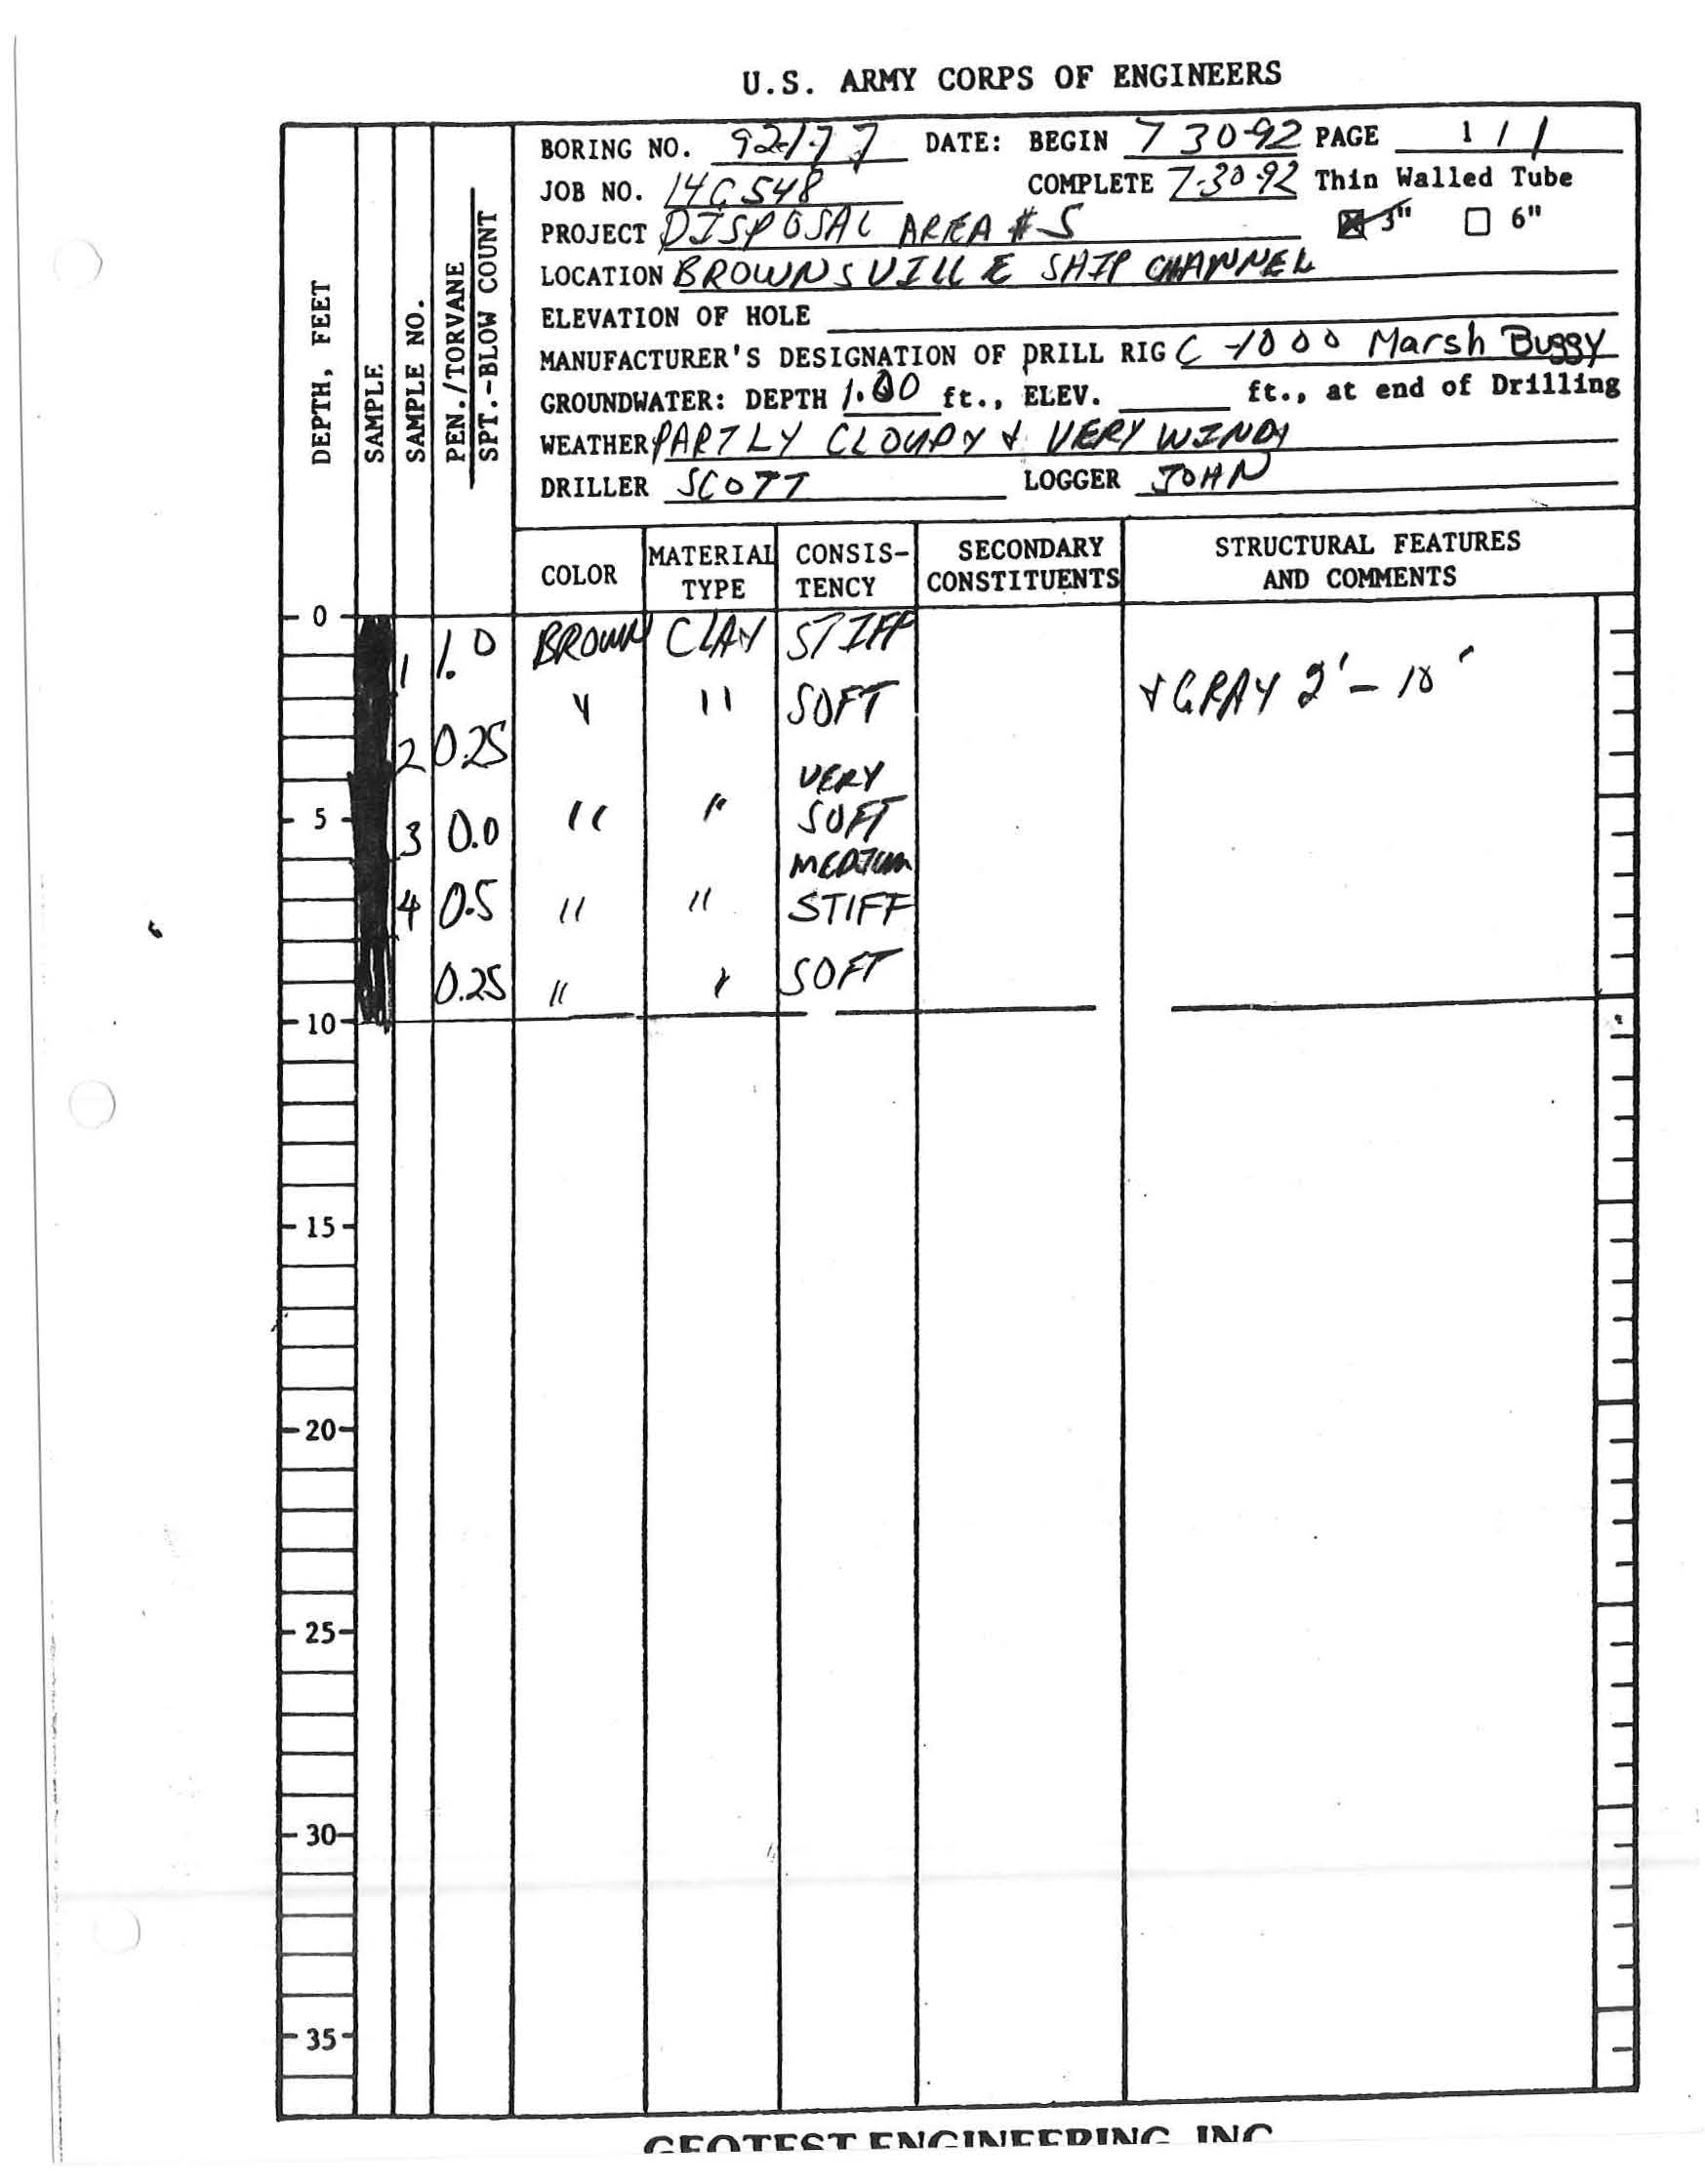 U.S. ARMY CORPS OF ENGINEERS
BORING NO. 92-177 DATE: BEGIN 7 30-92 PAGE 1 / 1
JOB NO. 14C548 COMPLETE 7-30-92 Thin Walled Tube
PROJECT DISPOSAL AREA #5 3" 6"
LOCATION BROWNSVILLE SHIP CHANNEL
ELEVATION OF HOLE
MANUFACTURER'S DESIGNATION OF DRILL RIG C-1000 Marsh Buggy
GROUNDWATER: DEPTH 1.00 ft., ELEV. ft., at end of Drilling
WEATHER PARTLY CLOUDY & VERY WINDY
DRILLER SCOTT LOGGER JOHN
DEPTH, FEET
SAMPLE
SAMPLE NO.
PEN./TORVANE
SPT.-BLOW COUNT
COLOR
MATERIAL
TYPE
CONSIS-
TENCY
SECONDARY
CONSTITUENTS
STRUCTURAL FEATURES
AND COMMENTS
0
1 1.0 BROWN CLAY STIFF
" " SOFT & GRAY 2' - 10'
2 0.25
VERY
5 3 0.0 " " SOFT
MEDIUM
4 0.5 " " STIFF
0.25 " " SOFT
10
15
20
25
30
35
GEOTEST ENGINEERING, INC.